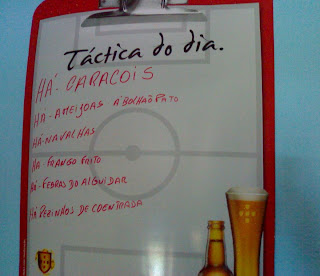 Táctica do dia.
HÁ - CARACOIS
HÁ - AMEIJOAS A BOLHÃO PATO
HÁ - NAVALHAS
HÁ - FRANGO FRITO
HÁ - FEBRAS DO ALGUIDAR
HÁ PEZINHOS DE COENTRADA